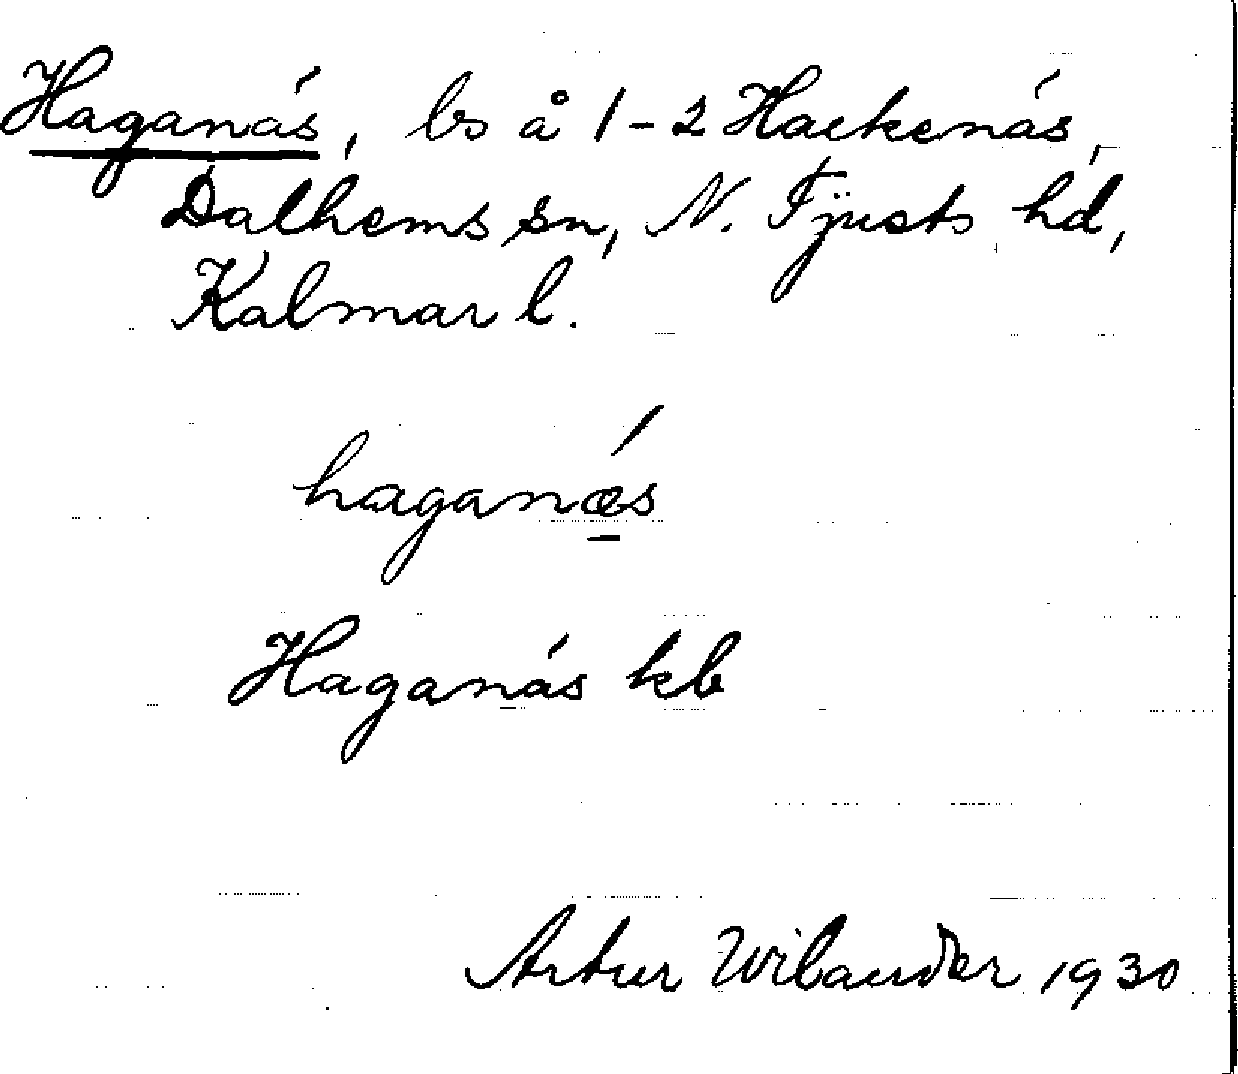 Haganäs, ls å 1-2 Hackenäs,
Dalhems sn, N. Tjusts hd,
Kalmar l.
haganǽ̱s
Haganäs kb
Artur Wilander 1930